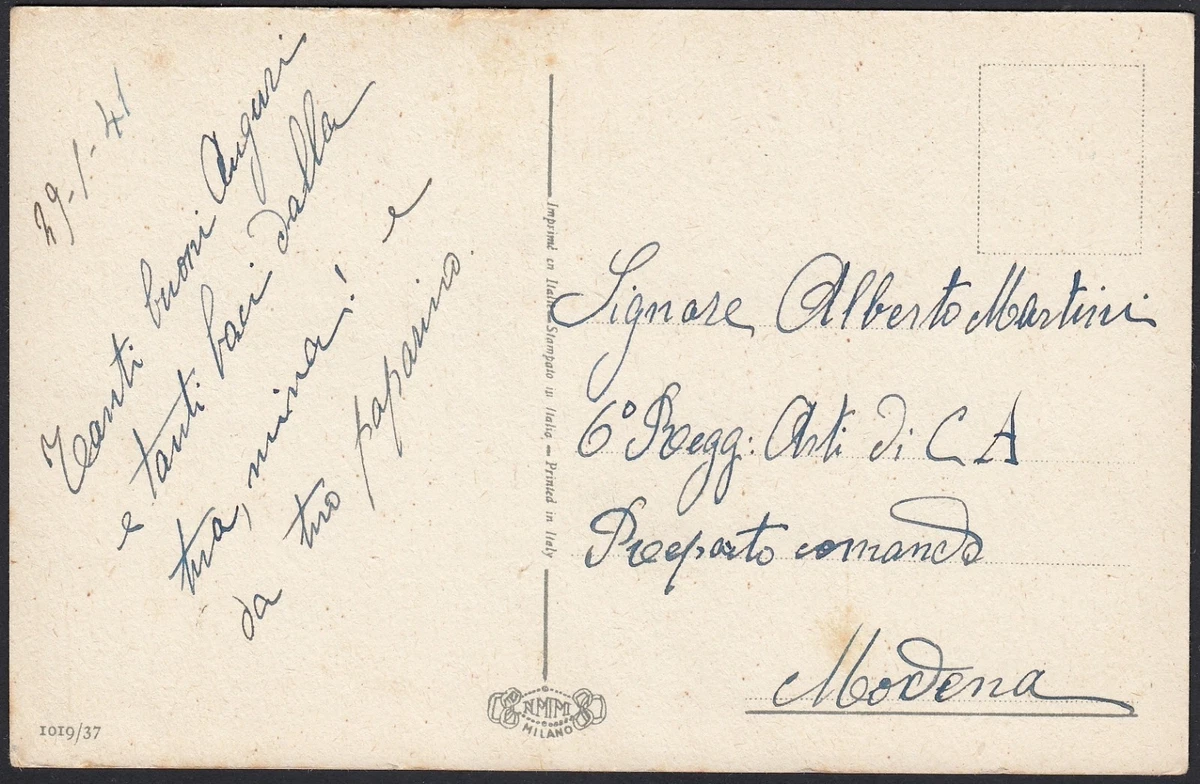 29-1-41
Tanti buoni Auguri
e tanti baci dalla
tua, mina! e
da tuo paparino.
Imprimé en Italie - Stampato in Italia - Printed in Italy
Signore Alberto Martini
6° Regg: Arti di C A
Reeparto comando
Modena
NMM
MILANO
1019/37